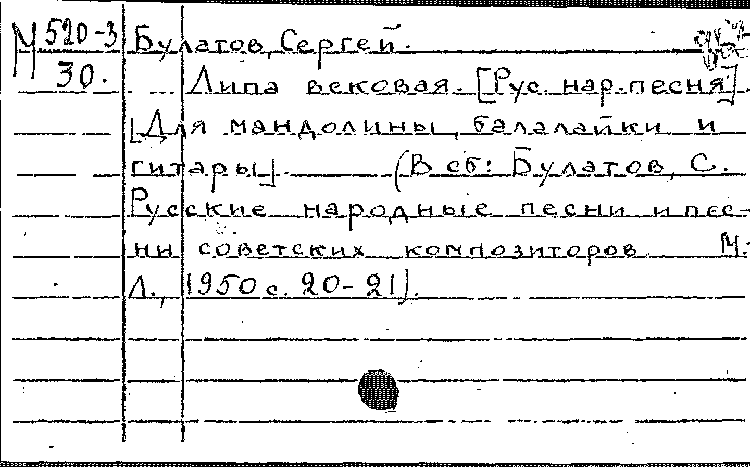 М 520-3 Булатов, Сергей.
30. Липа вековая. [Рус. нар. песня].
[Для мандолины, балалайки и
гитары]. (В сб: Булатов, С.
Русские народные песни и пес-
ни советских композиторов М.
Л., 1950 с. 20-21).